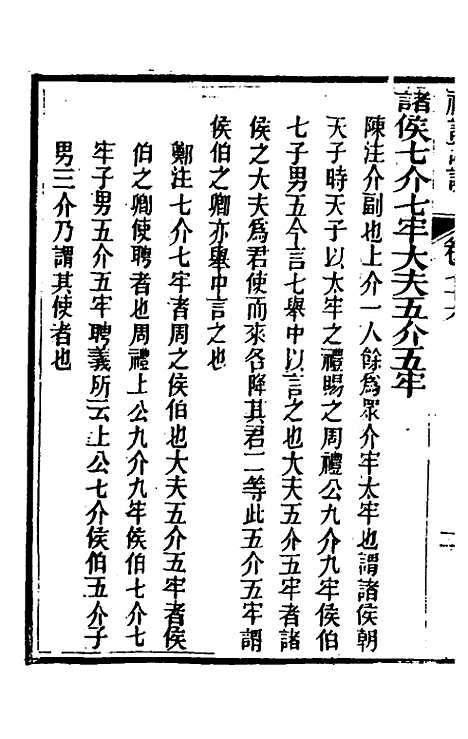 諸侯七介七牢大夫五介五牢
陳注介副也上介一人餘為眾介牢太牢也謂諸侯朝
天子時天子以太牢之禮賜之周禮公九介九牢侯伯
七子男五今言七舉中以言之也大夫五介五牢者諸
侯之大夫為君使而來各降其君二等此五介五牢謂
侯伯之卿亦舉中言之也
鄭注七介七牢者周之侯伯也大夫五介五牢者侯
伯之卿使聘者也周禮上公九介九牢侯伯七介七
牢子男五介五牢聘義所云上公七介侯伯五介子
男三介乃謂其使者也